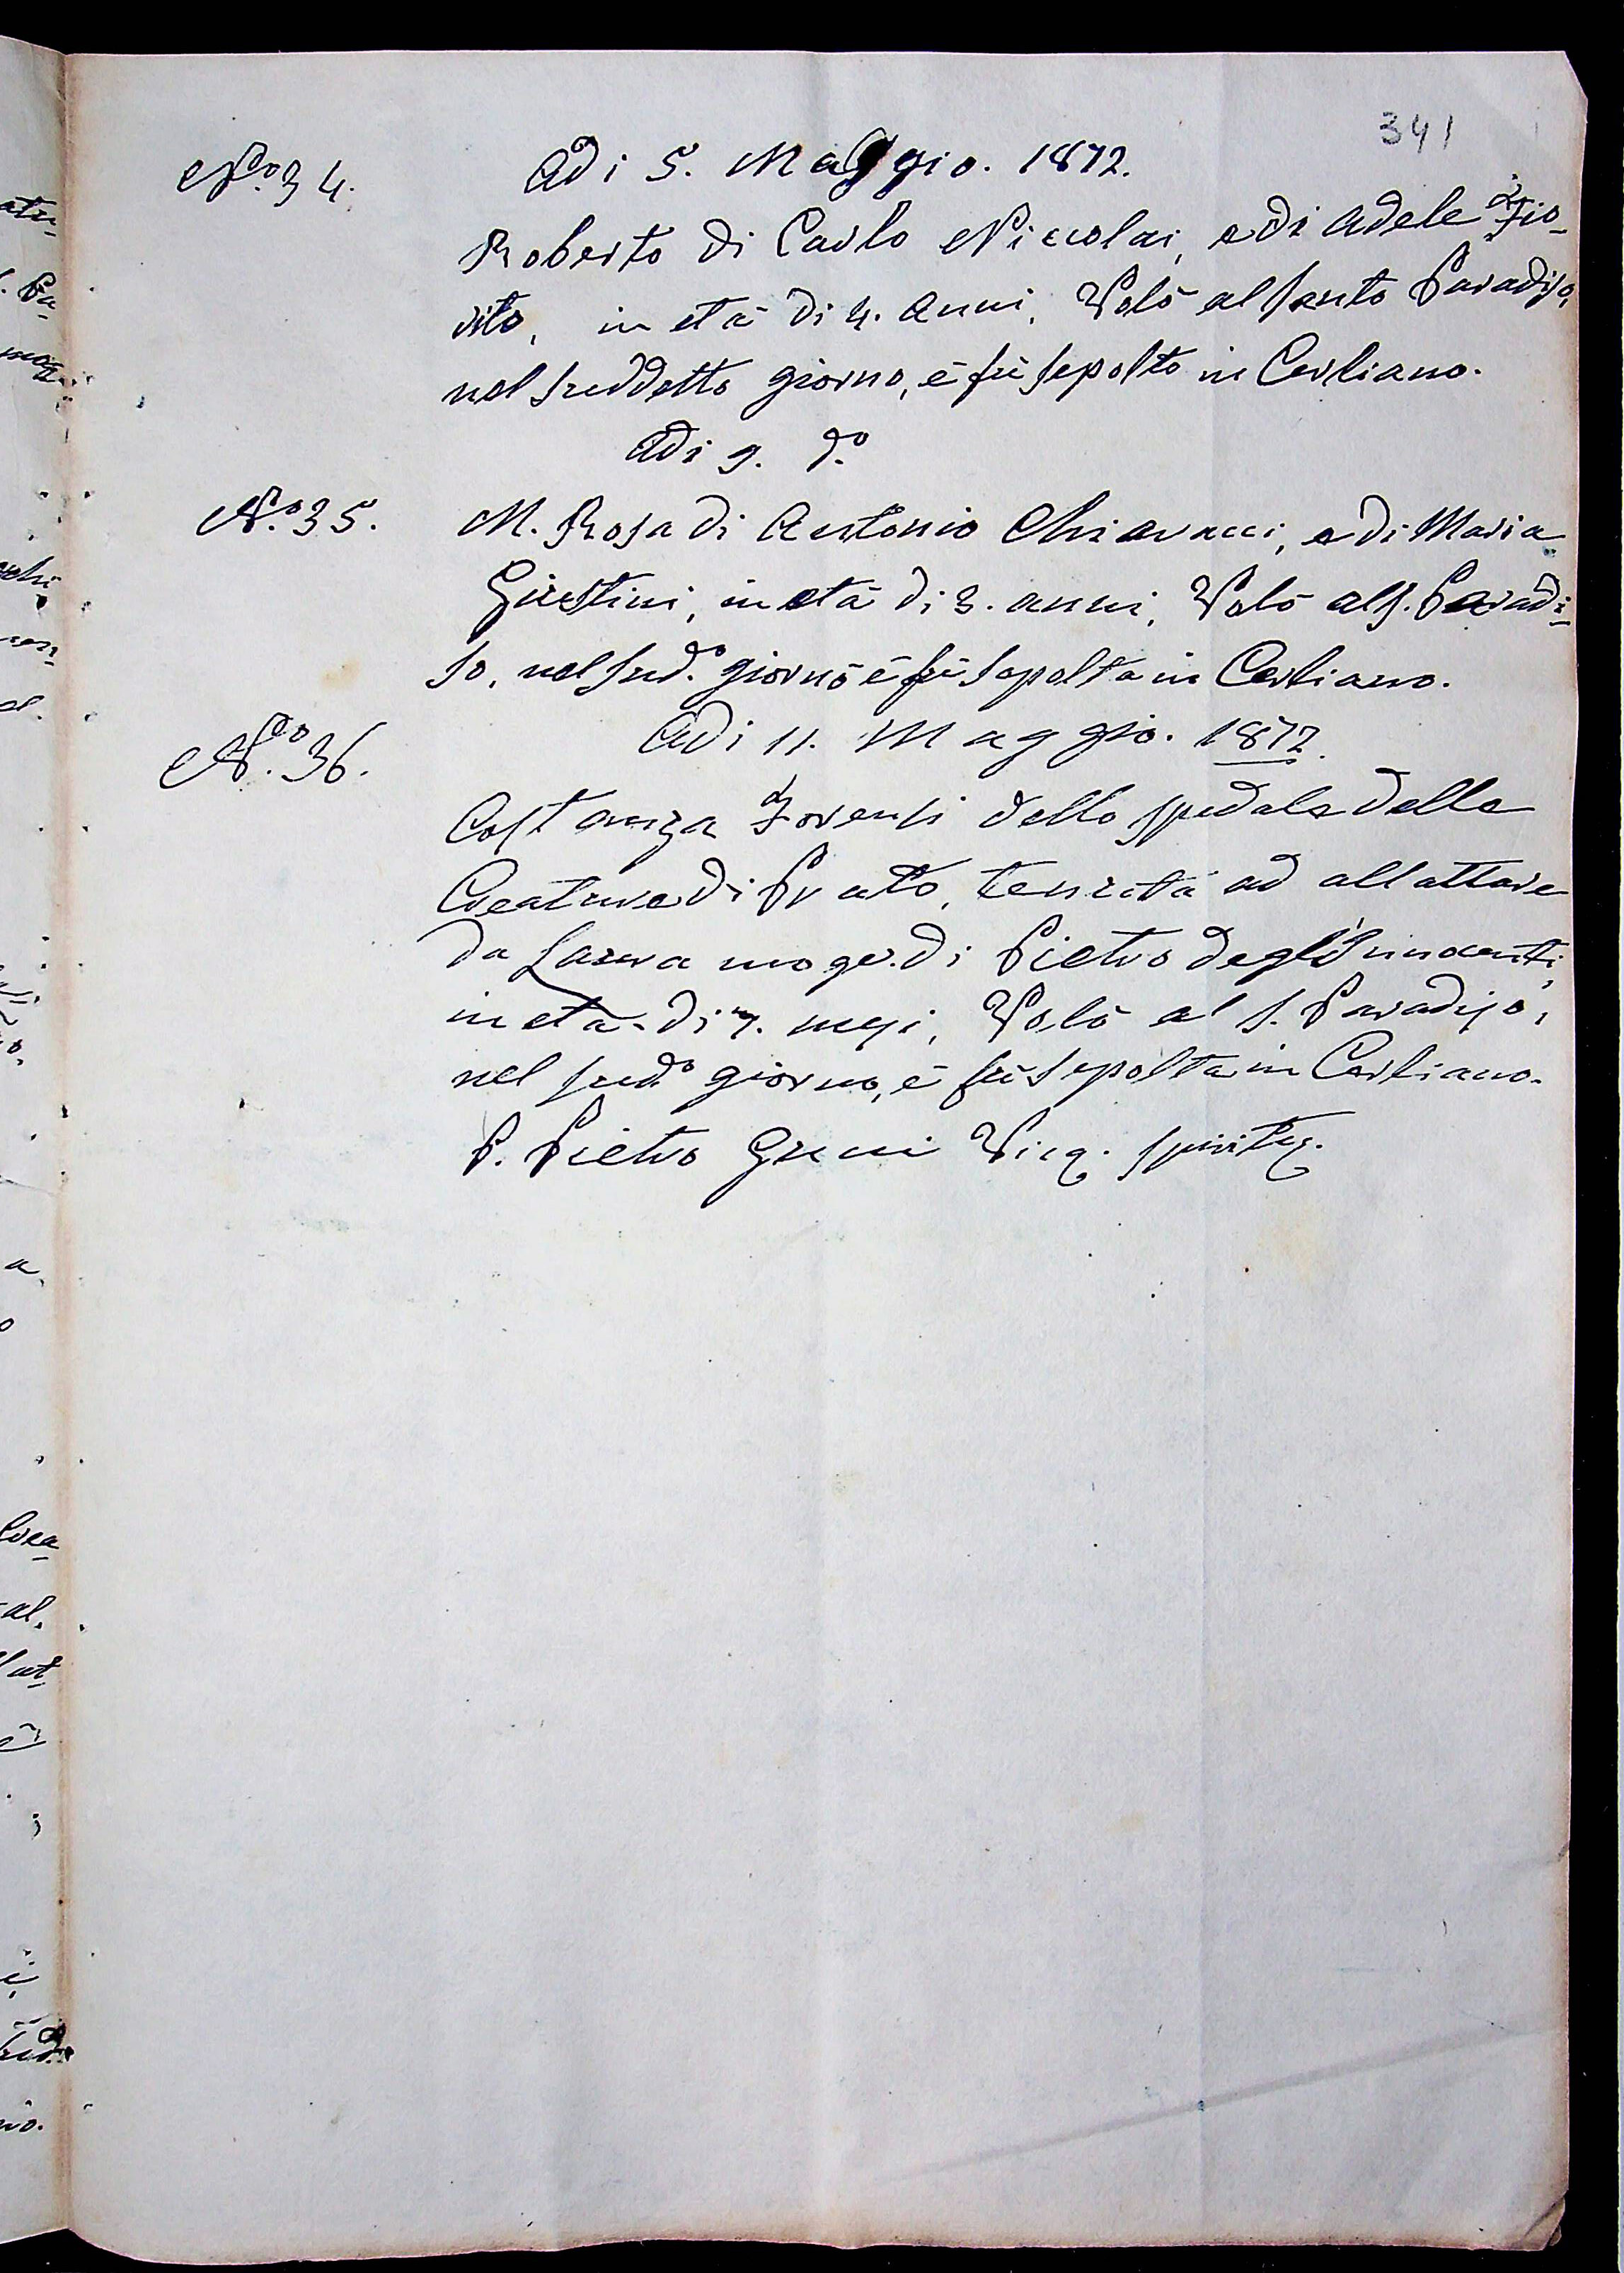 341
N.º 34. Adi 5. Maggio. 1872.
Roberto di Carlo Niccolai, e di Adele Fio-
rito, in età di 4. Anni, Volò al Santo Paradiso,
nel suddetto giorno, é fù sepolto in Cerliano.
Adi 9. d.º
N.º 35. M. Rosa di Antonio Chiavacci, e di Maria
Giustini, in età di 3. anni, Volò al S. Paradi-
so, nel sud.º giorno é fù sepolta in Cerliano.
N.º 36. Adi 11. Maggio. 1872.
Costanza Forensi dello spedale delle
Creature di Prato, tenuta ad allattare
da Laura moge. di Pietro degl'Innocenti,
in età di 7. mesi, Volò al S. Paradiso,
nel sud.º giorno, é fù sepolta in Cerliano.
P. Pietro